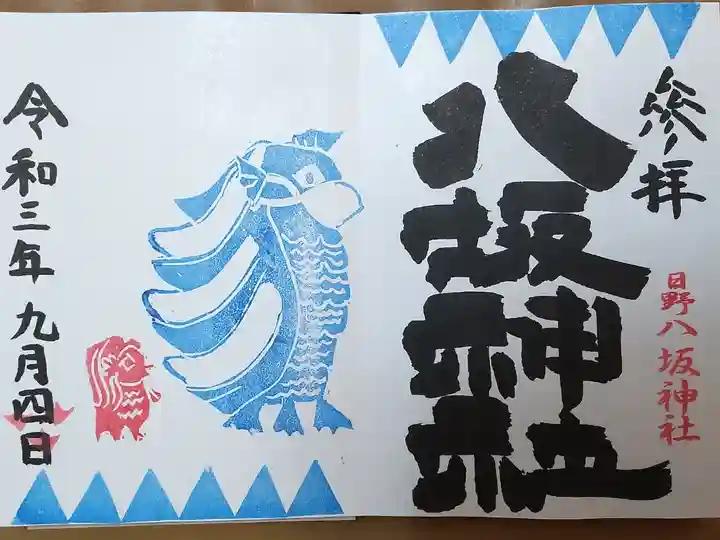 參拝
八坂神社
日野八坂神社
令和三年九月四日